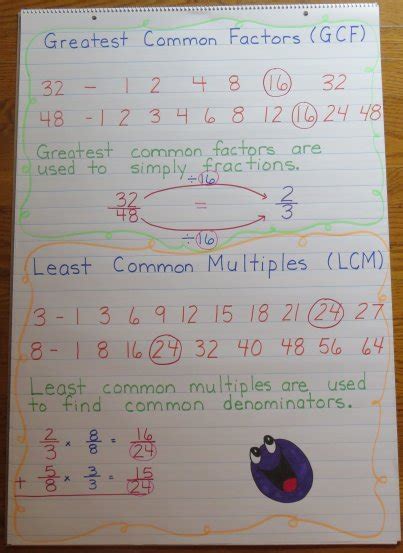 Greatest Common Factors (GCF)
32 - 1 2 4 8 16 32
48 - 1 2 3 4 6 8 12 16 24 48
Greatest common factors are
used to simply fractions.
÷16
32/48 = 2/3
÷16
Least Common Multiples (LCM)
3 - 1 3 6 9 12 15 18 21 24 27
8 - 1 8 16 24 32 40 48 56 64
Least common multiples are used
to find common denominators.
2/3 x 8/8 = 16/24
+ 5/8 x 3/3 = 15/24